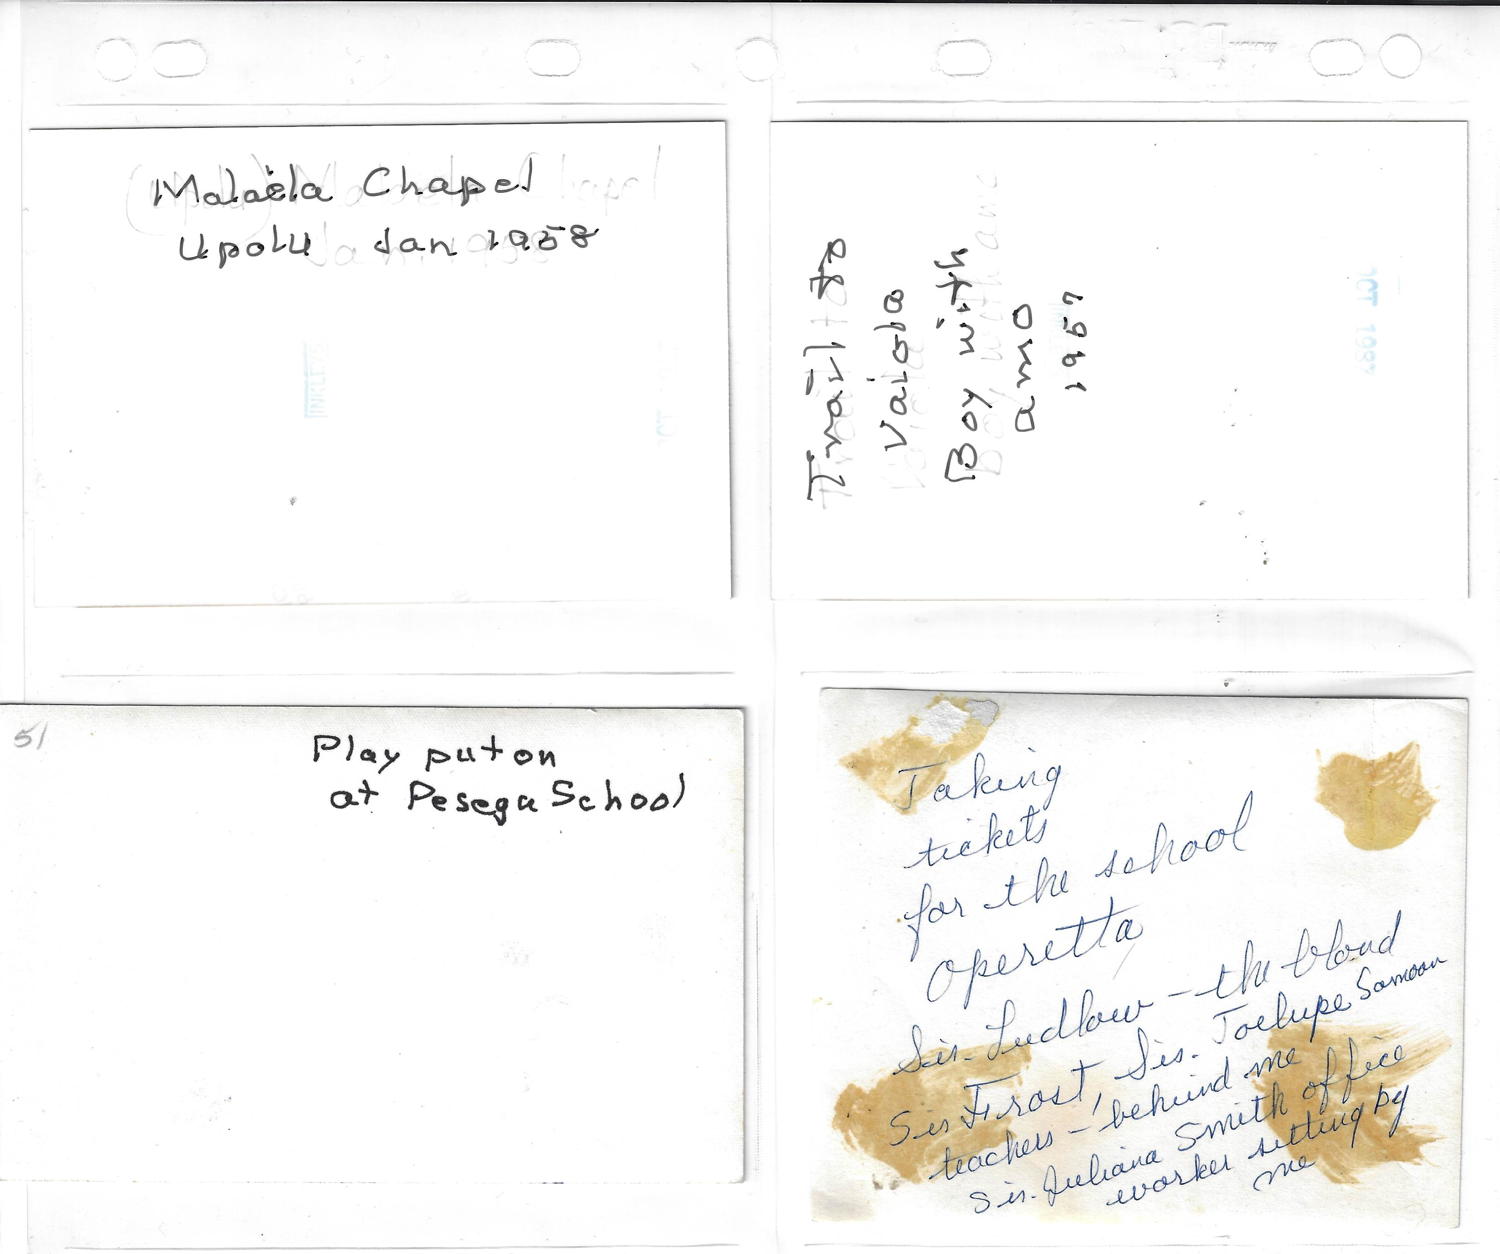 Malaëla Chapel
Upolu Jan 1958
Vaiola
Boy with
amo
1957
OCT 1987
51
Play put on
at Pesega School
Taking
tickets
for the school
operetta
Sis. Ludlow - the blond
Sis Frost, Sis. Toelupe Samoan
teachers - behind me
Sis. Juliana Smith office
worker sitting by
me